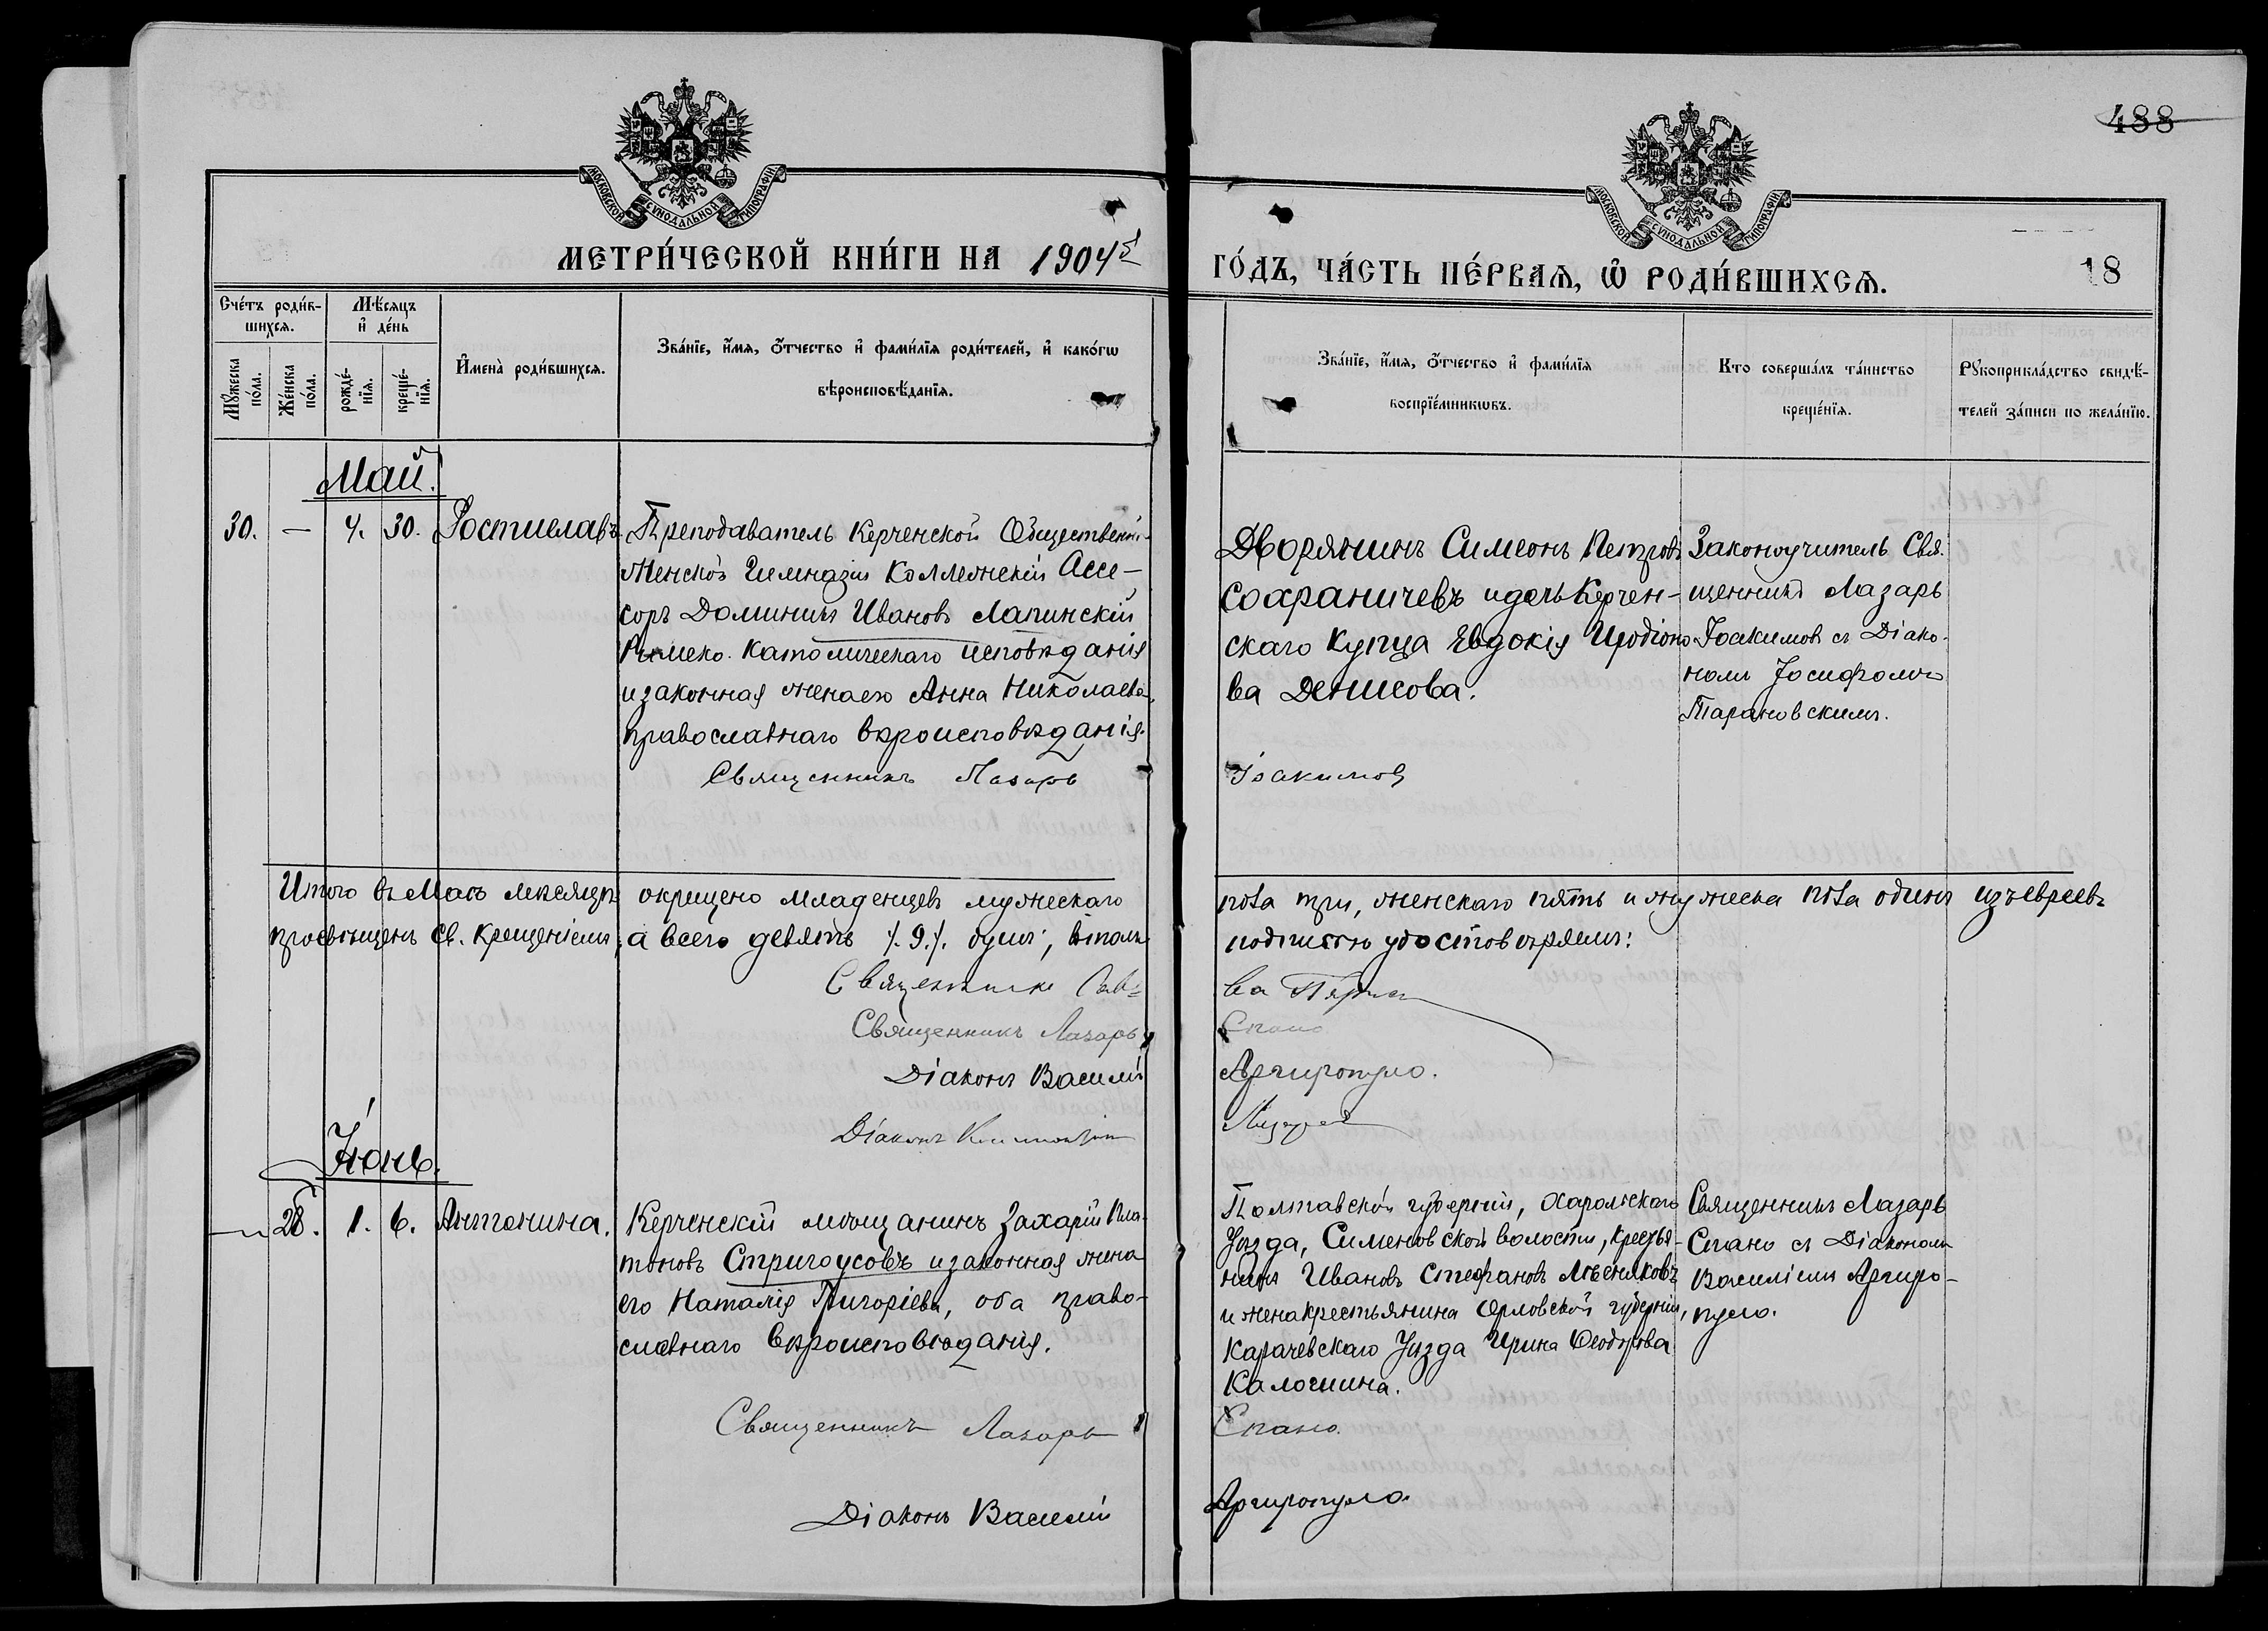 488
МОСКОВСКОЙ СѴНОДАЛЬНОЙ ТИПОГРАФІИ
МОСКОВСКОЙ СѴНОДАЛЬНОЙ ТИПОГРАФІИ
МЕТРИ́ЧЕСКОЙ КНИ́ГИ НА 1904й
ГО́ДЪ, ЧА́СТЬ ПЕ́РВАѦ, Ѡ РОДИ́ВШИХСѦ.
18
Сче́тъ роди́в-
шихсѧ.
Мѣ́сѧцъ
и҆ де́нь
Мꙋ́жеска
по́ла.
Же́нска
по́ла.
рожде́-
нїѧ.
креще́-
нїѧ.
И҆мена̀ роди́вшихсѧ.
Зва́нїе, и҆́мѧ, ѻ҆́тчество и҆ фами́лїѧ роди́телей, и҆ како́гѡ
вѣроисповѣ́данїѧ.
Зва́нїе, и҆́мѧ, ѻ҆́тчество и҆ фами́лїѧ
воспрїе́мникѡвъ.
Кто соверша́лъ та́инство
креще́нїѧ.
Рꙋкоприкла́дство свидѣ́-
телей за́писи по жела́нїю.
Май.
30. — 4. 30. Ростиславъ.
Преподаватель Керченской Общественной
Женской Гимназіи Коллежскій Ассе-
соръ Доминикъ Ивановъ Лапинскій
Римско-Католическаго исповѣданія
и законная жена его Анна Николаева,
православнаго вѣроисповѣданія.
Священникъ Лазарь
Дворянинъ Симеонъ Петровъ
Сохраничевъ и дочь Керчен-
скаго Купца Евдокія Иродіоно-
ва Денисова.
Іоакимовъ
Законоучитель Свя-
щенникъ Лазарь
Іоакимовъ съ Діако-
номъ Іосифомъ
Тарановскимъ.
Итого въ Маѣ мѣсяцѣ окрещено младенцевъ мужескаго
пола три, женскаго пять и мужеска пола одинъ изъ евреевъ
просвѣщенъ св. Крещеніемъ, а всего девять /.9./. душъ, въ томъ
подписью удостовѣряемъ:
Священникъ Сав-
ва
Священникъ Лазарь
Спано
Діаконъ Василій
Аргиропуло.
Діаконъ
Іюнь.
— 28. 1. 6. Антонина.
Керченскій мѣщанинъ Захарій Пла-
тоновъ Стригоусовъ и законная жена
его Наталія Григоріева, оба право-
славнаго вѣроисповѣданія.
Священникъ Лазарь
Діаконъ Василій
Полтавской губерніи, Харольскаго
Уѣзда, Сименовской волости, крестья-
нинъ Ивановъ Стефановъ
и жена крестьянина Орловской губерніи,
Карачевскаго Уѣзда Ирина Ѳеодорова
Калошина.
Спано.
Аргиропуло.
Священникъ Лазарь
Спано съ Діакономъ
Василіемъ Аргиро-
пуло.